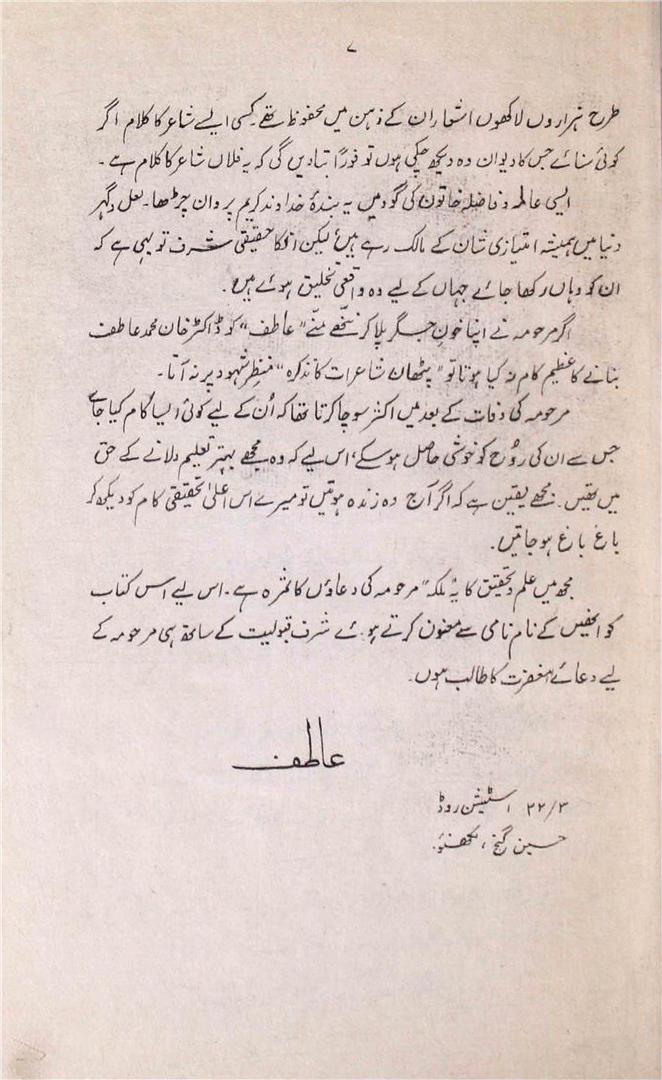 ۷
طرح ہزاروں لاکھوں اشعار ان کے ذہن میں محفوظ تھے۔ کسی ایسے شاعر کا کلام اگر
کوئی سنائے جس کا دیوان وہ دیکھ چکی ہوں تو فوراً بتا دیں گی کہ یہ فلاں شاعر کا کلام ہے۔
ایسی عالمہ و فاضلہ خاتون کی گود میں یہ بندۂ خداوند کریم پروان چڑھا۔ لعل و گہر
دنیا میں ہمیشہ امتیازی شان کے مالک رہے ہیں لیکن انکا حقیقی شرف تو یہی ہے کہ
ان کو وہاں رکھا جائے جہاں کے لیے وہ واقعی تخلیق ہوئے ہیں۔
اگر مرحومہ نے اپنا خونِ جگر پلا کر ننھے منے "عاطف" کو ڈاکٹر خان محمد عاطف
بنانے کا عظیم کام نہ کیا ہوتا تو "پٹھان شاعرات کا تذکرہ" منظرِ شہود پر نہ آتا۔
مرحومہ کی وفات کے بعد میں اکثر سوچا کرتا تھا کہ اُن کے لیے کوئی ایسا کام کیا جائے
جس سے ان کی روُح کو خوشی حاصل ہو سکے، اس لیے کہ وہ مجھے بہتر تعلیم دلانے کے حق
میں تھیں۔ مجھے یقین ہے کہ اگر آج وہ زندہ ہوتیں تو میرے اس اعلیٰ تحقیقی کام کو دیکھ کر
باغ باغ ہو جاتیں۔
مجھ میں علم و تحقیق کا یہ "ملکہ" مرحومہ کی دعاؤں کا ثمرہ ہے۔ اس لیے اس کتاب
کو انھیں کے نام نامی سے معنون کرتے ہوئے شرف قبولیت کے ساتھ ہی مرحومہ کے
لیے دعائے مغفرت کا طالب ہوں۔
عاطف
۲۲/۳ اسٹیشن روڈ
حسین گنج، لکھنؤ۔